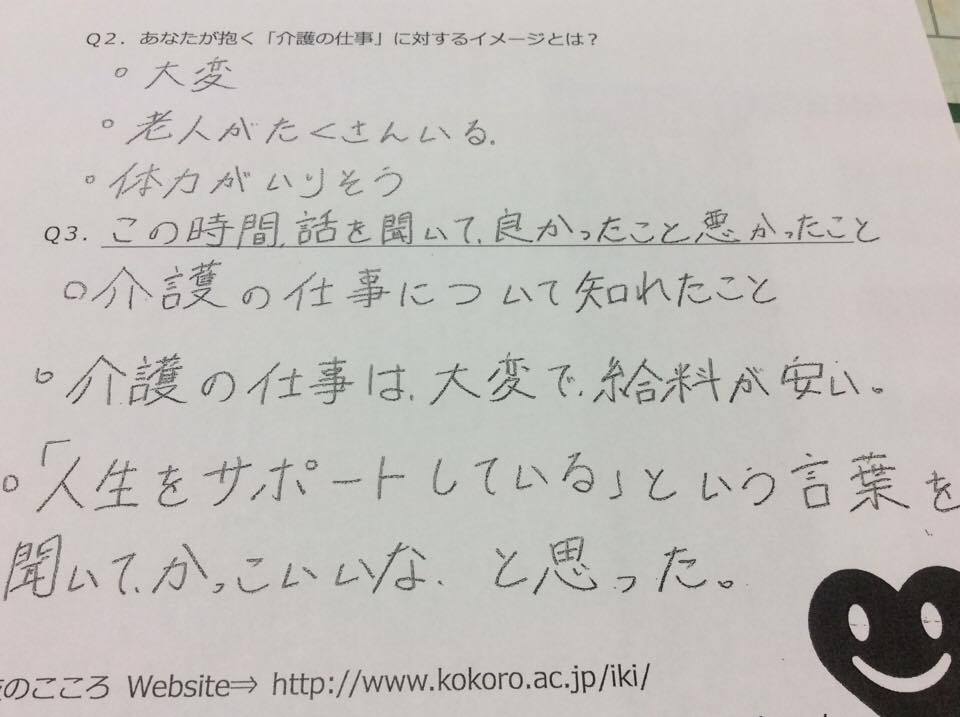 Q2．あなたが抱く「介護の仕事」に対するイメージとは？
○ 大変
○ 老人がたくさんいる.
○ 体力がいりそう
Q3．この時間, 話を聞いて, 良かったこと悪かったこと
○ 介護の仕事について知れたこと
○ 介護の仕事は, 大変で, 給料が安い。
○「人生をサポートしている」という言葉を
聞いて, かっこいいな. と思った。
のこころ Website⇒ http://www.kokoro.ac.jp/iki/